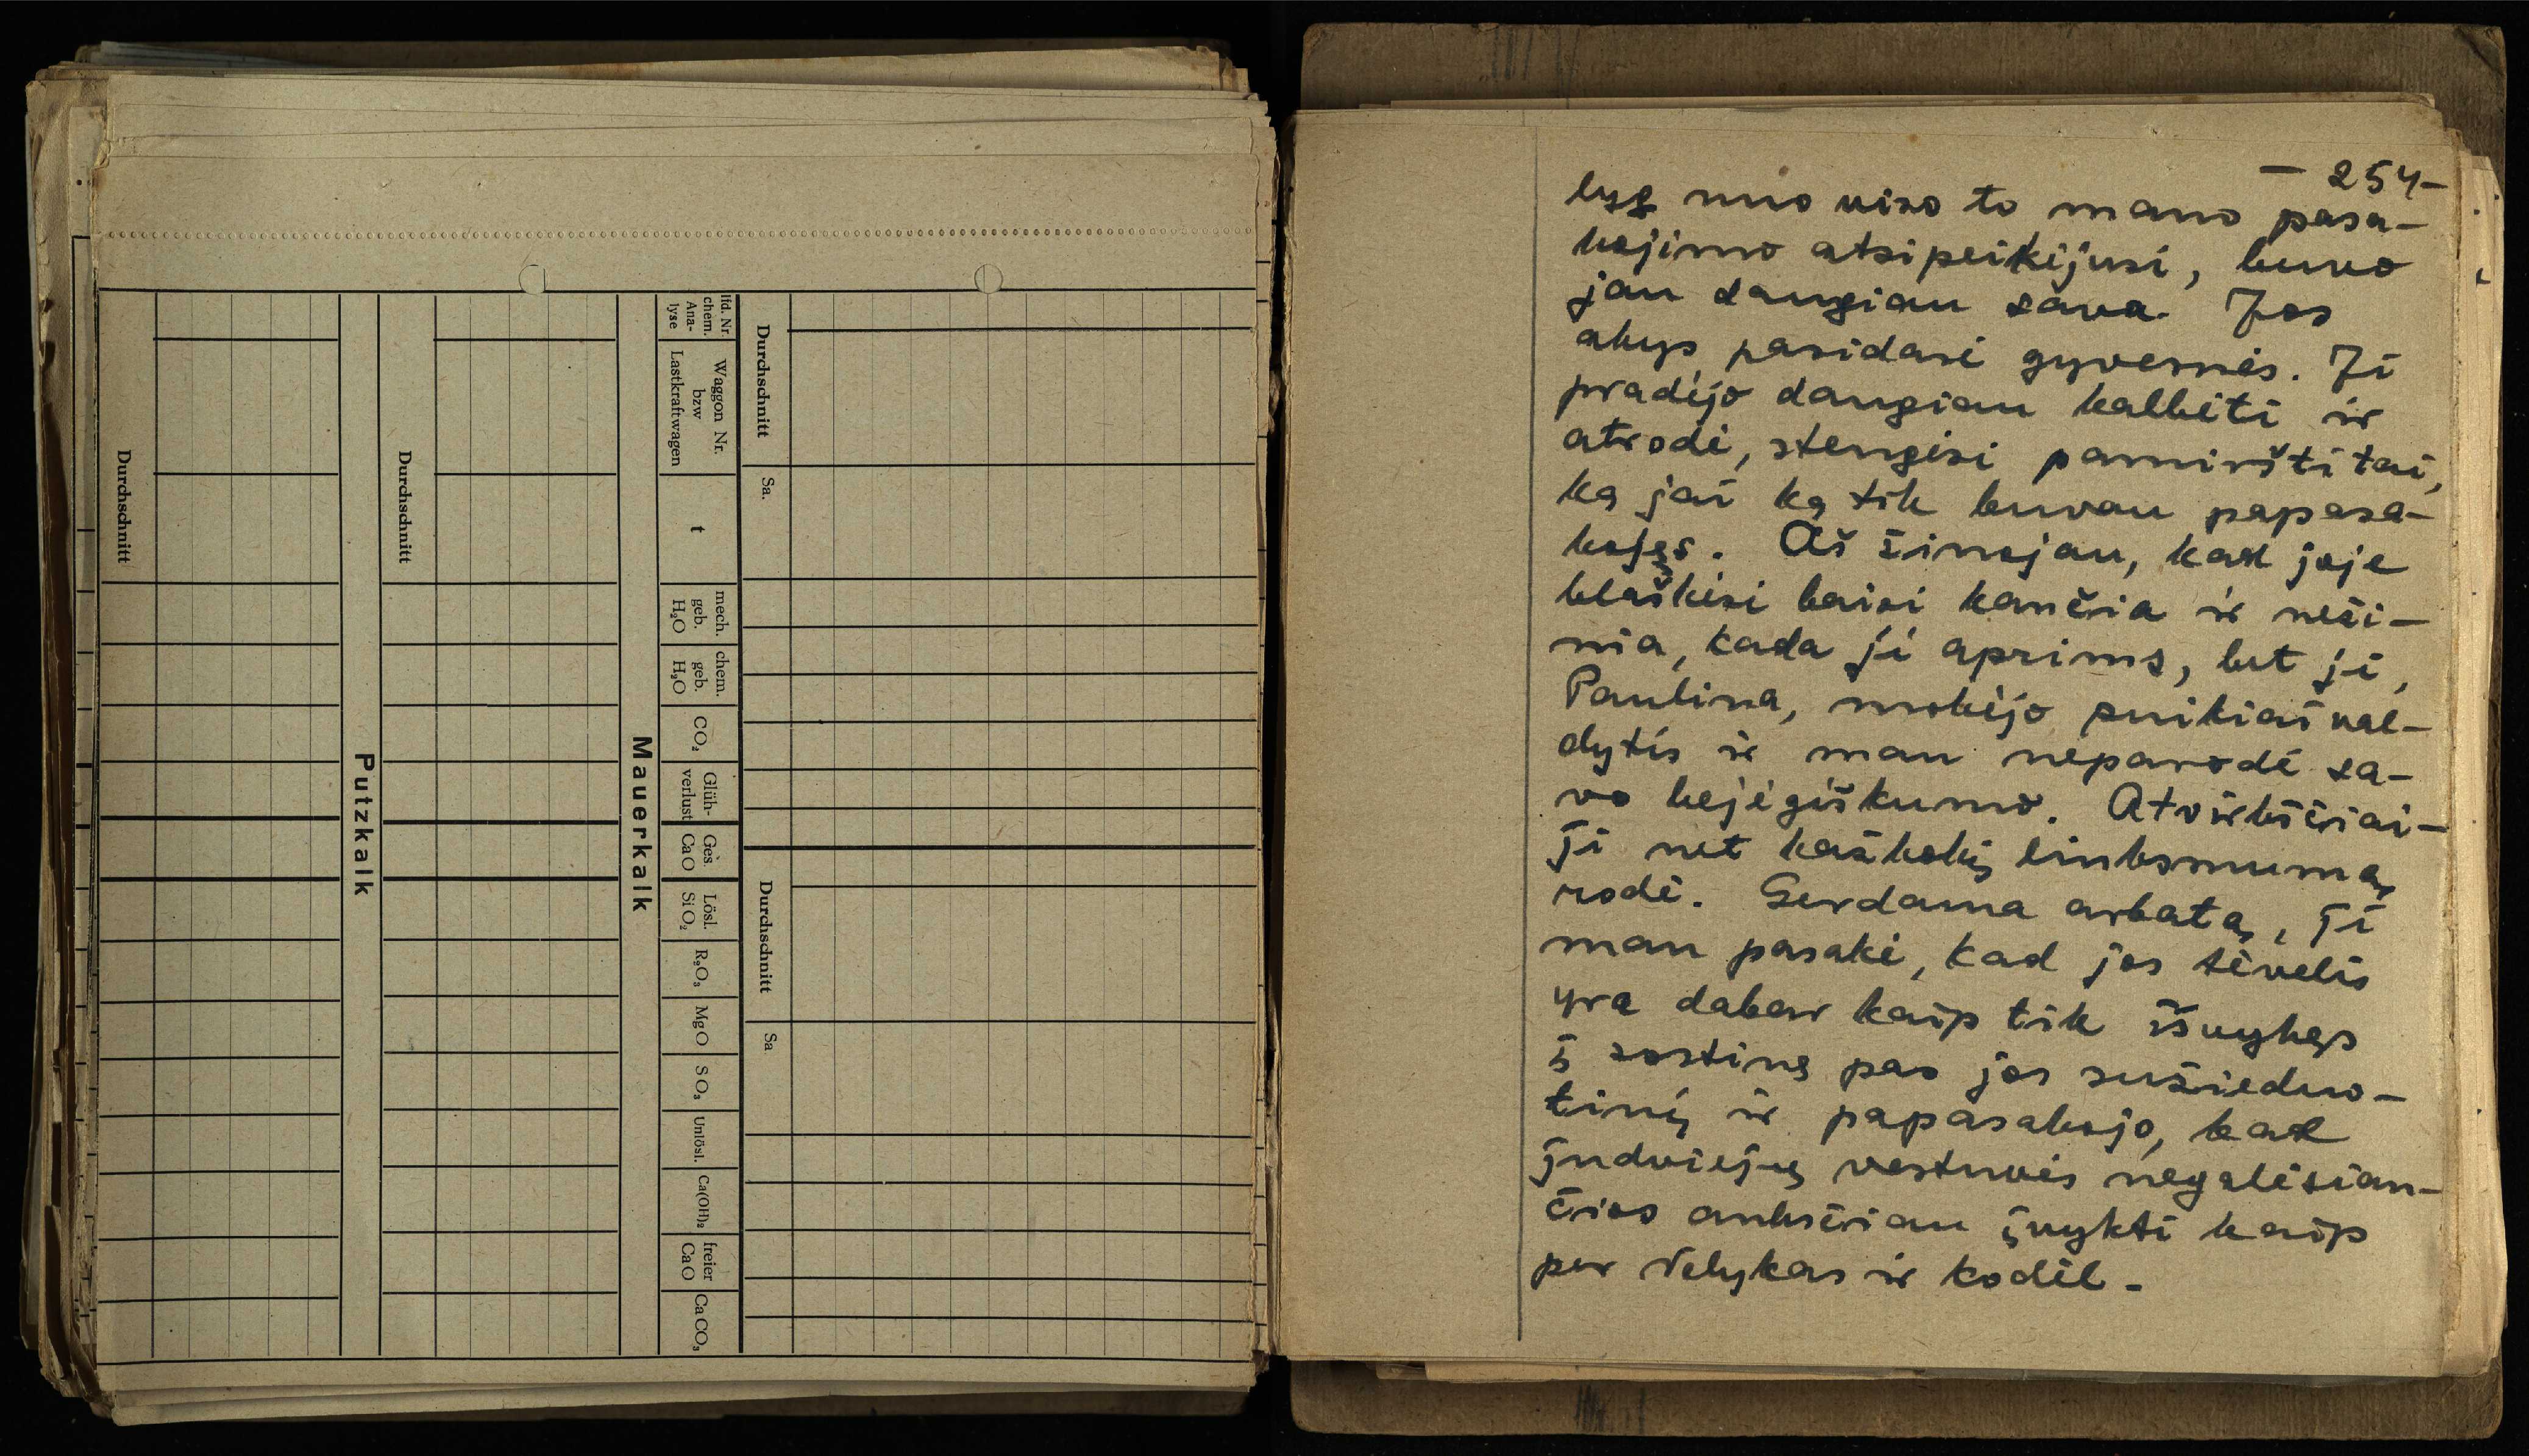 Durchschnitt
Durchschnitt
Putzkalk
Mauerkalk
lfd. Nr.
chem.
Ana-
lyse
Waggon Nr.
bzw
Lastkraftwagen
t
mech.
geb.
H₂O
chem.
geb.
H₂O
CO₂
Glüh-
verlust
Ges.
CaO
Lösl.
SiO₂
R₂O₃
MgO
SO₃
Unlösl.
Ca(OH)₂
freier
CaO
CaCO₃
Durchschnitt
Sa.
Durchschnitt
Sa
— 254-
lyg nuo viso to mano pasa-
kojimo atsipeikėjusi, buvo
jau daugiau sava. Jos
akys pasidarė gyvesnės. Ji
pradėjo daugiau kalbėti ir
atrodė, stengėsi pamiršti tai,
ką jai ką tik buvau papasa-
kojęs. Aš žinojau, kad joje
blaškėsi baisi kančia ir neži-
nia, kada ji aprims, bet ji,
Paulina, mokėjo puikiai val-
dytis ir man neparodė sa-
vo bejėgiškumo. Atvirkščiai-
ji net kažkokį linksmumą
rodė. Gerdama arbatą, ji
man pasakė, kad jos tėvelis
yra dabar kaip tik išvykęs
į sostinę pas jos sužieduo-
tinį ir papasakojo, kad
judviejų vestuvės negalėsian-
čios anksčiau įvykti kaip
per Velykas ir kodėl -